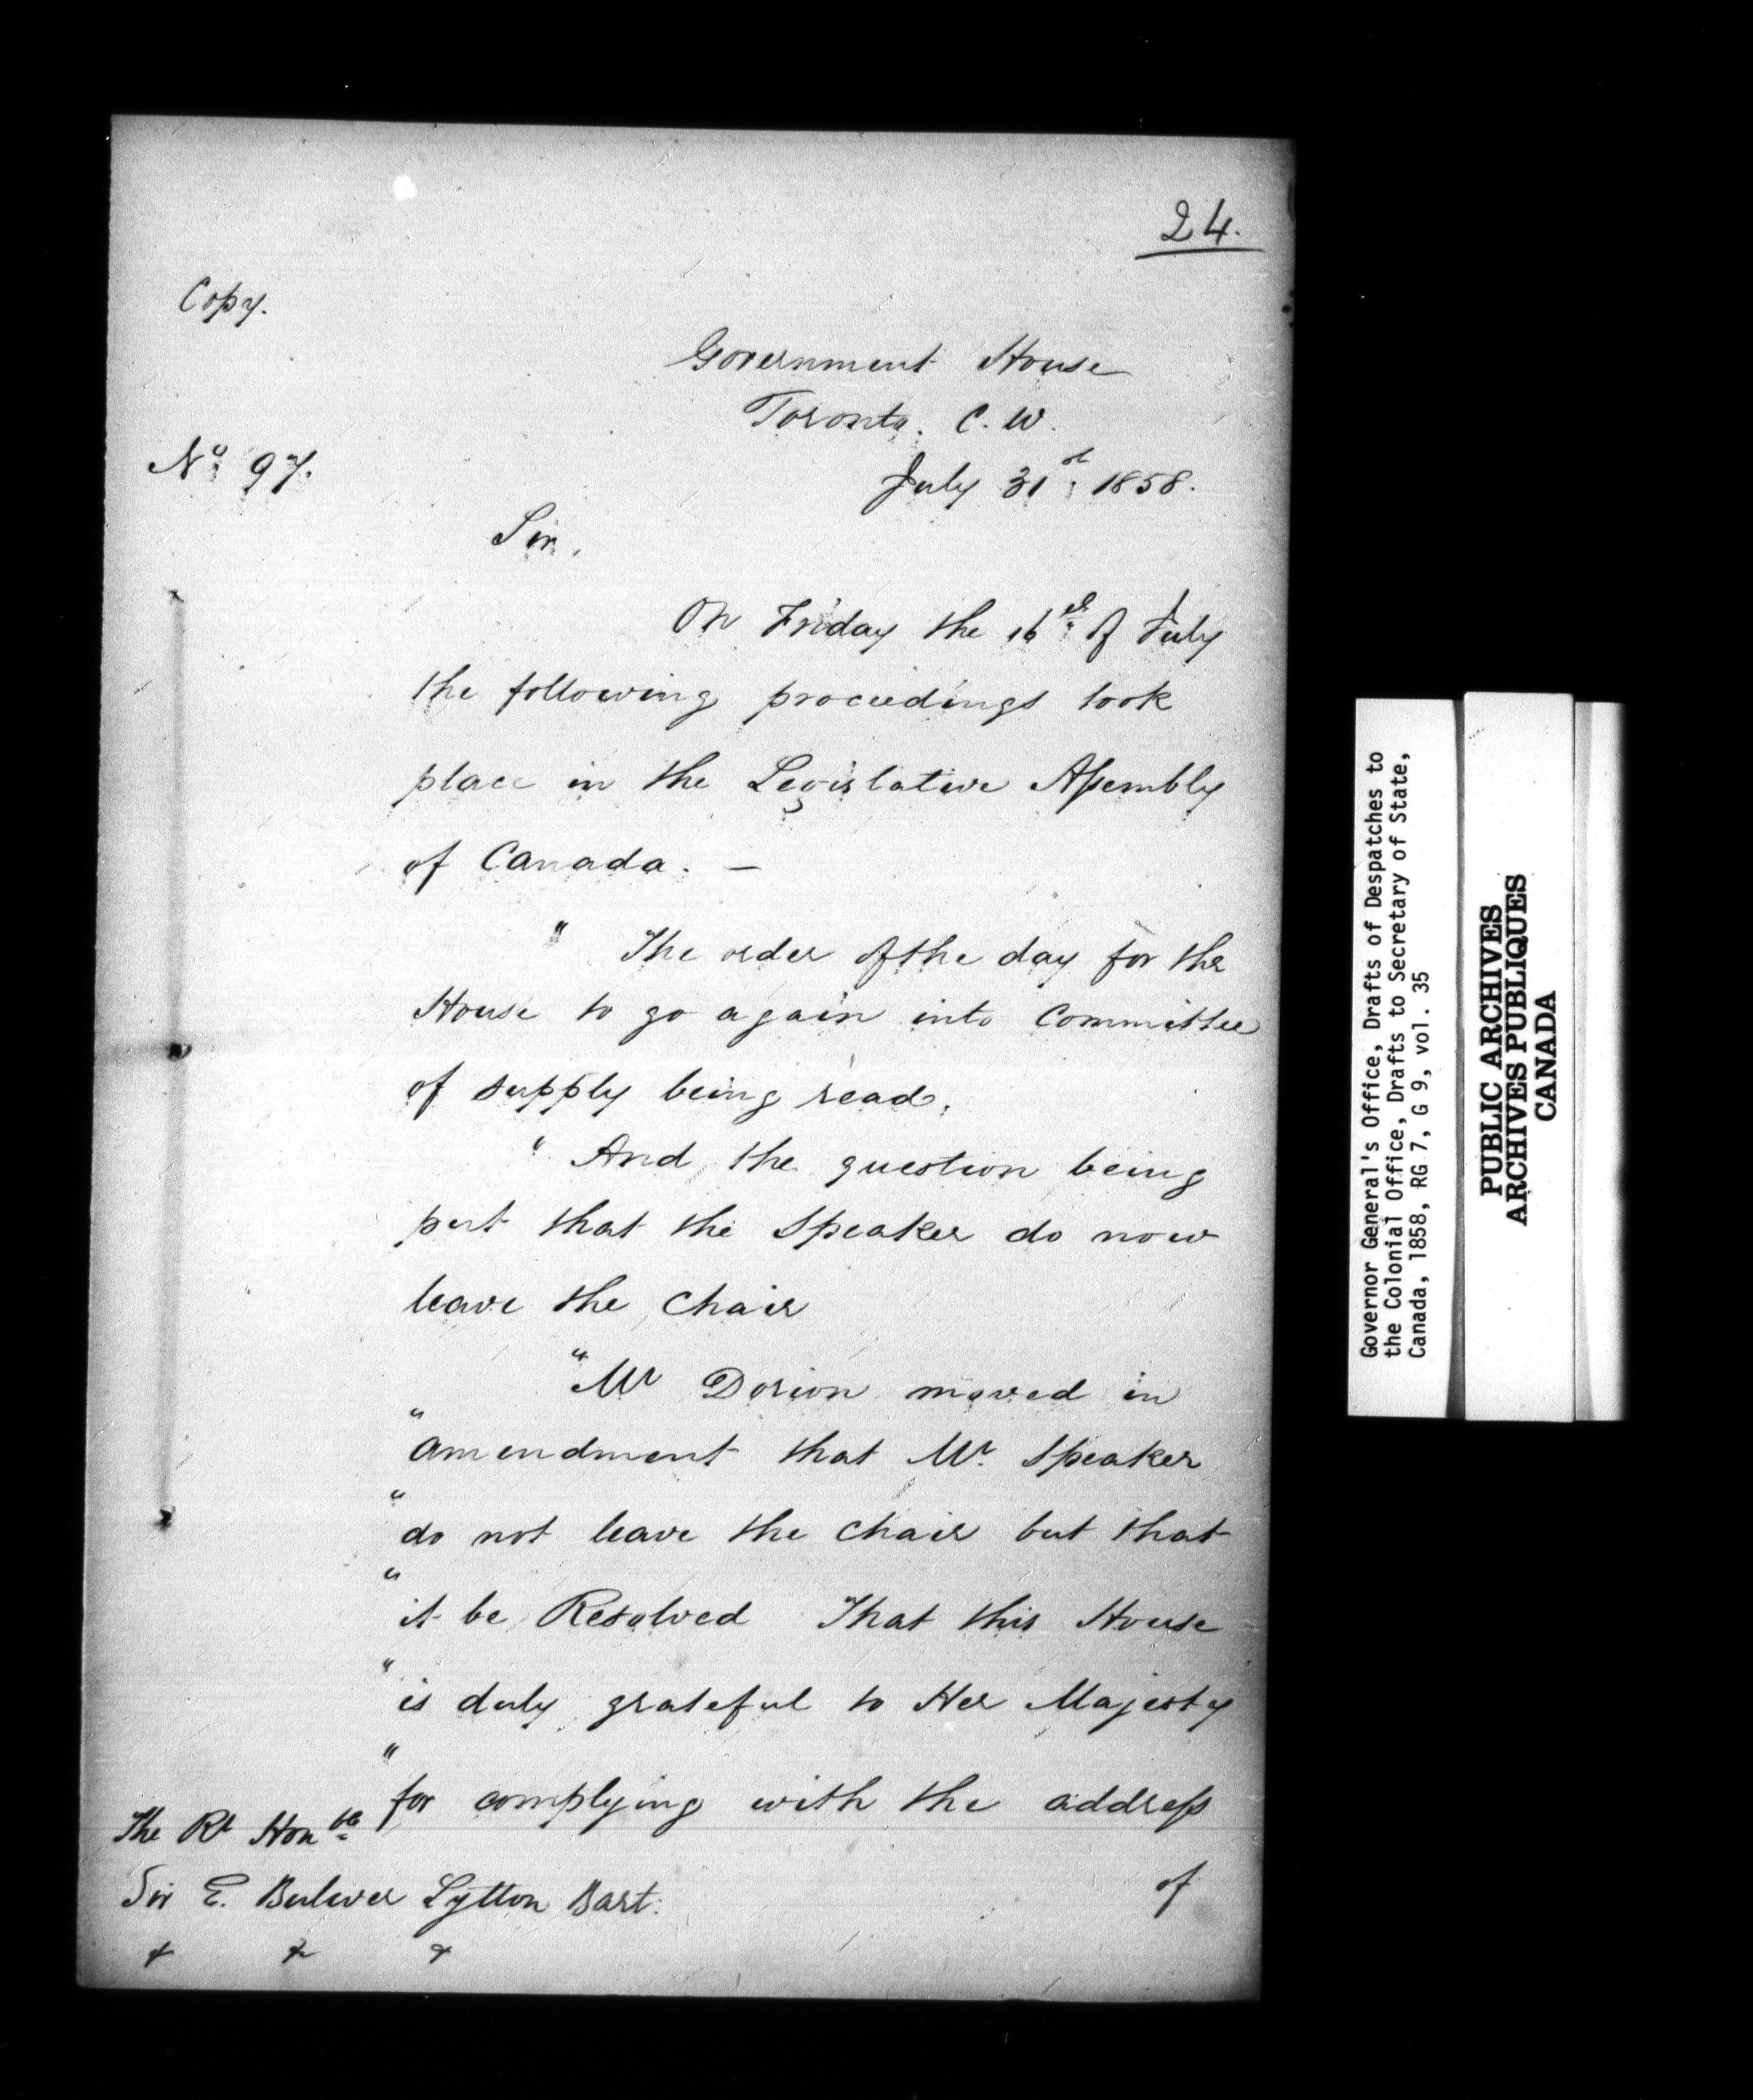 24.
Copy.
Government House
Toronto. C. W.
No. 97.
July 31st. 1858.
Sir,
On Friday the 16th. of July
the following proceedings took
place in the Legislative Assembly
of Canada. —
" The order of the day for the
House to go again into Committee
of supply being read,
" And the question being
put that the Speaker do now
leave the chair
" Mr Dorion moved in
" amendment that Mr. Speaker
" do not leave the chair but that
" it be Resolved That this House
" is duly grateful to Her Majesty
" for complying with the address
of
The Rt Honble
Sir E. Bulwer Lytton Bart:
& & &
Governor General's Office, Drafts of Despatches to
the Colonial Office, Drafts to Secretary of State,
Canada, 1858, RG 7, G 9, vol. 35
PUBLIC ARCHIVES
ARCHIVES PUBLIQUES
CANADA